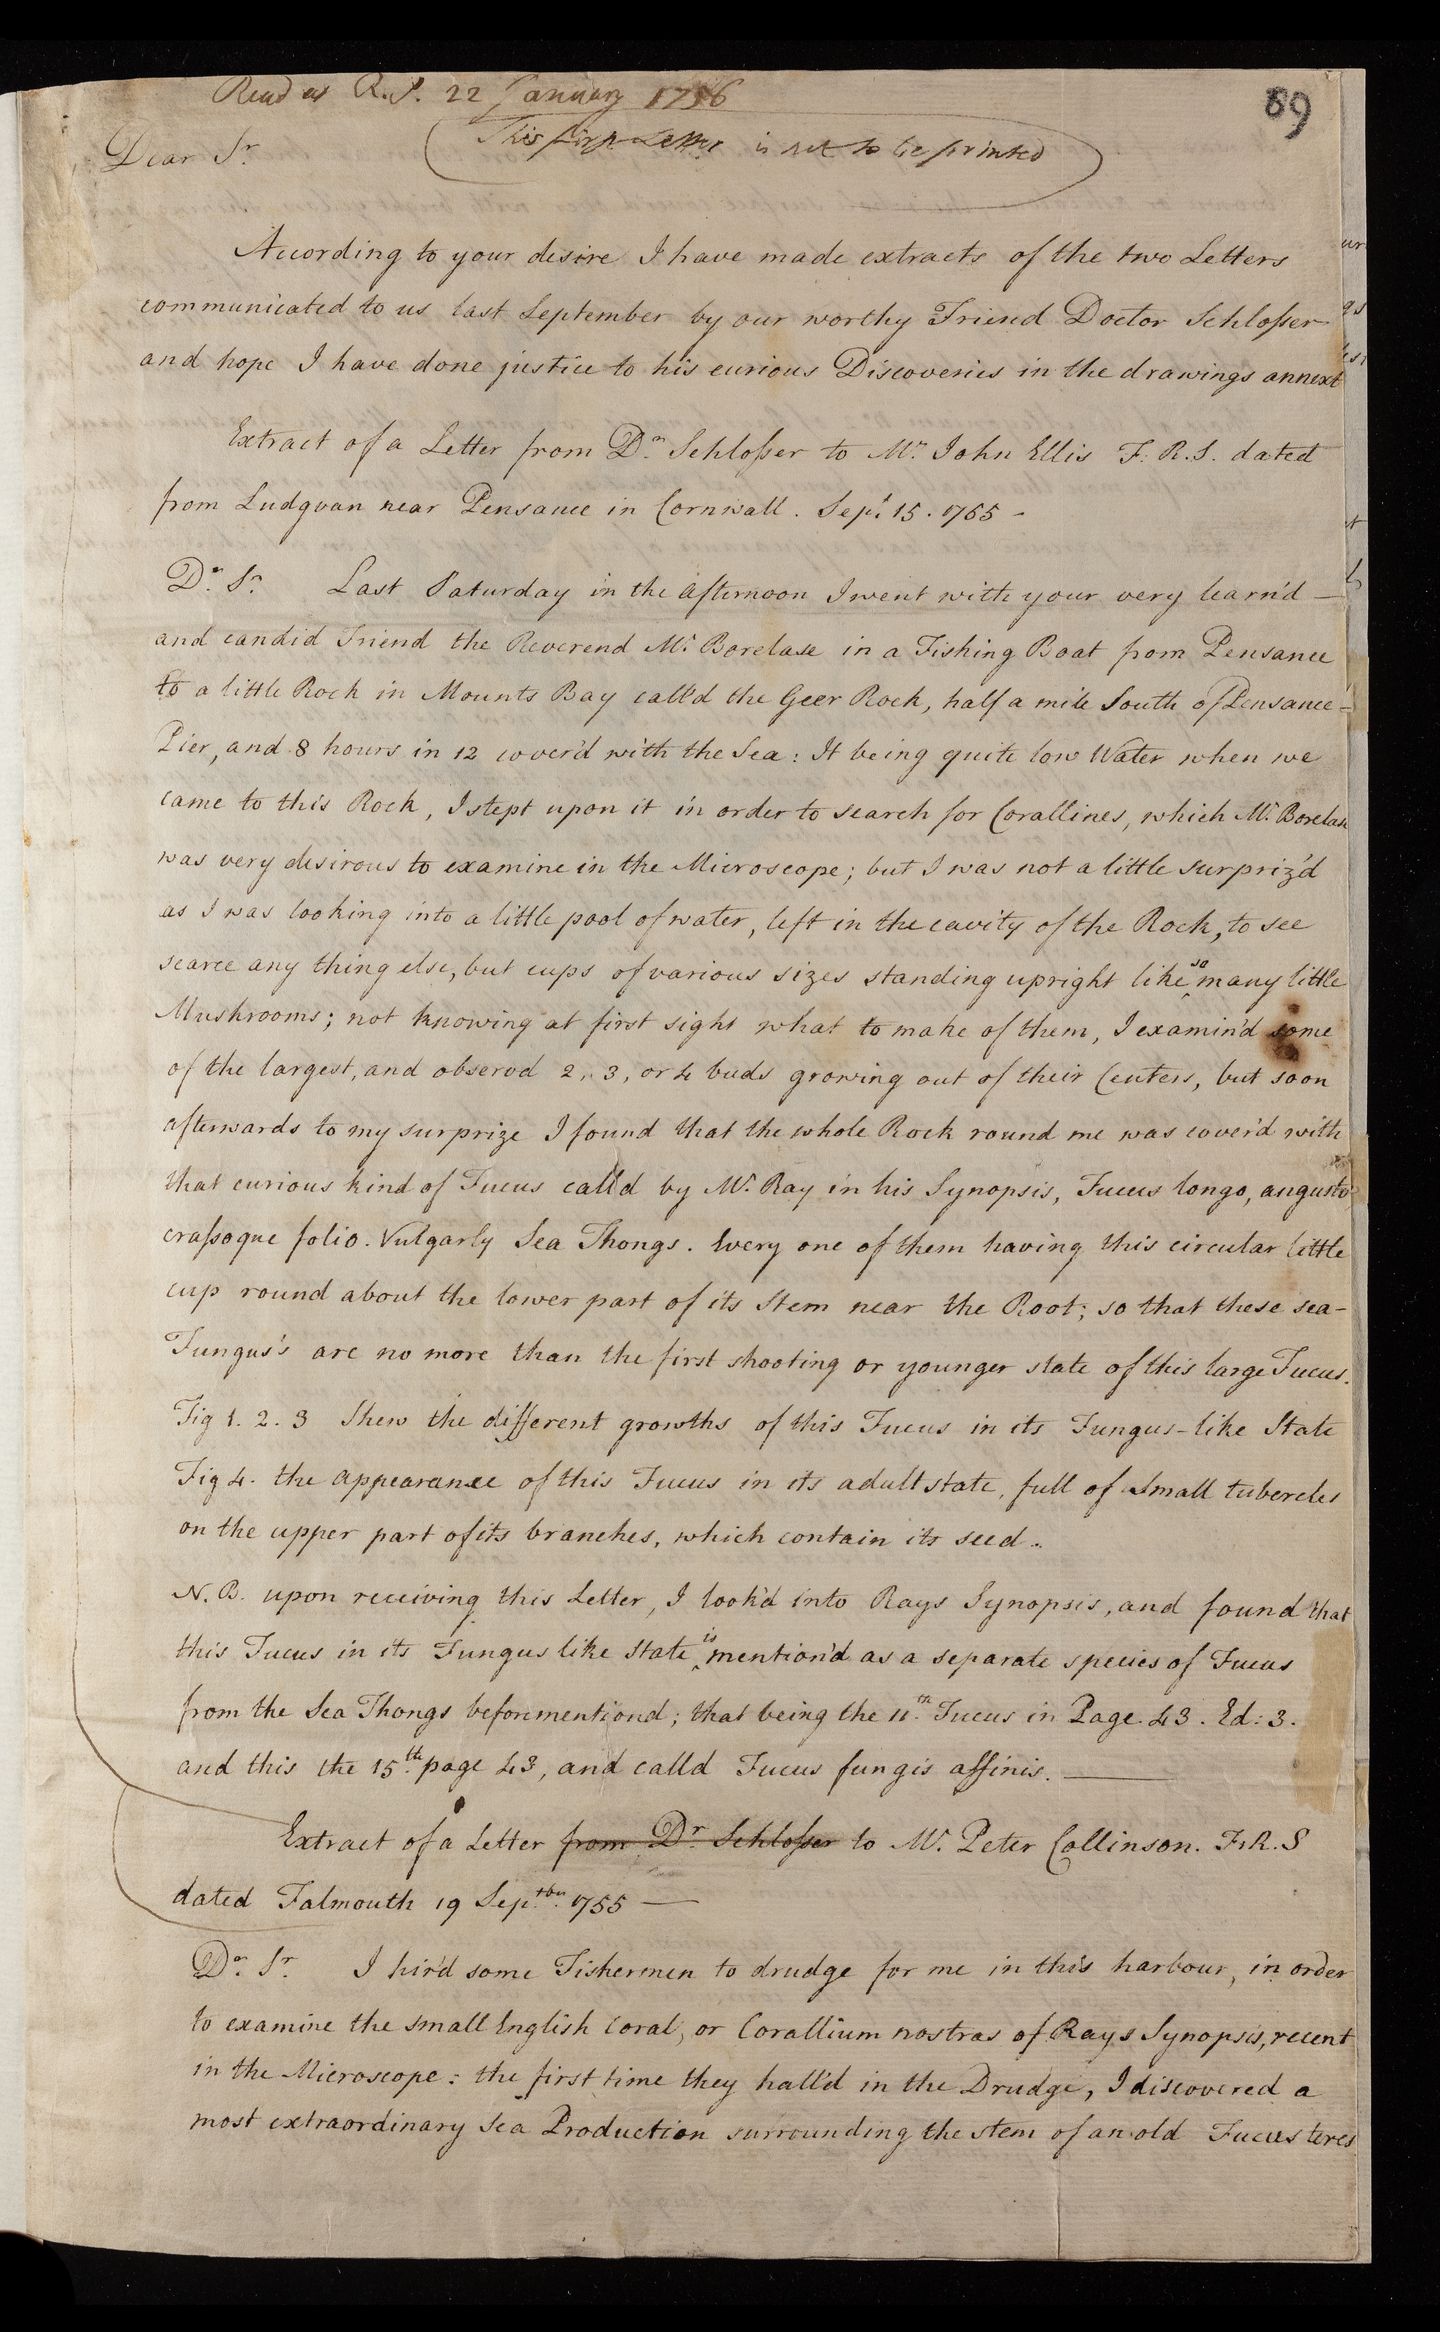 Read at R.S. 22 January 1756
89
This first Letter is not to be printed
Dear Sr.
According to your desire I have made extracts of the two Letters
communicated to us last September by our worthy Friend Doctor Schlosser
and hope I have done justice to his curious Discoveries in the drawings annext
Extract of a Letter from Dr. Schlosser to Mr. John Ellis F.R.S. dated
from Ludgvan near Pensance in Cornwall. Sept. 15. 1755 -
Dr. Sr. Last Saturday in the afternoon I went with your very learn'd —
and candid Friend the Reverend Mr. Borelase in a Fishing Boat from Pensance
to a little Rock in Mounts Bay call'd the Geer Rock, half a mile South of Pensance-
Pier, and 8 hours in 12 cover'd with the Sea: It being quite low Water when we
came to this Rock, I stept upon it in order to search for Corallines, which Mr. Borelase
was very desirous to examine in the Microscope; but I was not a little surpriz'd
as I was looking into a little pool of water, left in the cavity of the Rock, to see
scarce any thing else, but cups of various sizes standing upright like so many little
Mushrooms; not knowing at first sight what to make of them, I examin'd some
of the largest, and observd 2, 3, or 4 buds growing out of their Centers, but soon
afterwards to my surprize I found that the whole Rock round me was cover'd with
that curious kind of Fucus call'd by Mr. Ray in his Synopsis, Fucus longo, angusto
crassoque folio. Vulgarly Sea Thongs. Every one of them having this circular little
cup round about the lower part of its Stem near the Root; so that these sea-
Fungus's are no more than the first shooting or younger state of this large Fucus.
Fig 1. 2. 3 Shew the different growths of this Fucus in its Fungus-like State
Fig 4. the appearance of this Fucus in its adult state, full of small tubercles
on the upper part of its branches, which contain its seed..
N.B. upon receiving this Letter, I look'd into Rays Synopsis, and found that
this Fucus in its Fungus like State is mention'd as a separate species of Fucus
from the Sea Thongs beforementiond; that being the 11th Fucus in Page 43. Ed: 3.
and this the 15th. page 43, and calld Fucus fungis affinis. —
Extract of a Letter from Dr. Schlosser to Mr. Peter Collinson. F.R.S
dated Falmouth 19 Septbr. 1755 —
Dr. Sr. I hir'd some Fishermen to drudge for me in this harbour, in order
to examine the small English Coral, or Corallium nostras of Rays Synopsis, recent
in the Microscope: the first time they hall'd in the Drudge, I discovered a
most extraordinary Sea Production surrounding the stem of an old Fucus teres